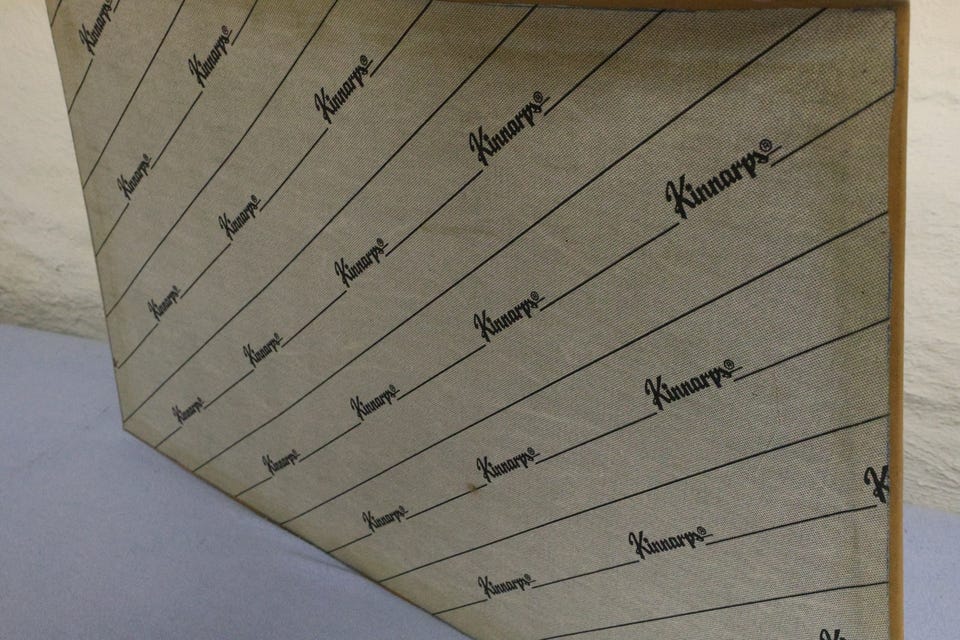 Kinnarps®
Kinnarps®
Kinnarps®
Kinnarps®
Kinnarps®
Kinnarps®
Kinnarps®
Kinnarps®
Kinnarps®
Kinnarps®
Kinnarps®
Kinnarps®
Kinnarps®
Kinnarps®
Kinnarps®
Kinnarps®
Kinnarps®
Kinnarps®
Kinnarps®